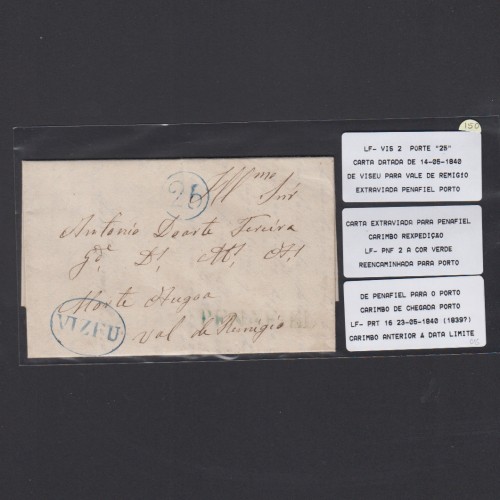 25
Illmo Snr
Antonio Duarte Pereira
Gde D! M! A!
Morte Augoa
Val de Remigio
VIZEU
150
LF- VIS 2 PORTE "25"
CARTA DATADA DE 14-05-1840
DE VISEU PARA VALE DE REMIGIO
EXTRAVIADA PENAFIEL PORTO
CARTA EXTRAVIADA PARA PENAFIEL
CARIMBO REXPEDIÇAO
LF- PNF 2 A COR VERDE
REENCAMINHADA PARA PORTO
DE PENAFIEL PARA O PORTO
CARIMBO DE CHEGADA PORTO
LF- PRT 16 23-05-1840 (1839?)
CARIMBO ANTERIOR A DATA LIMITE